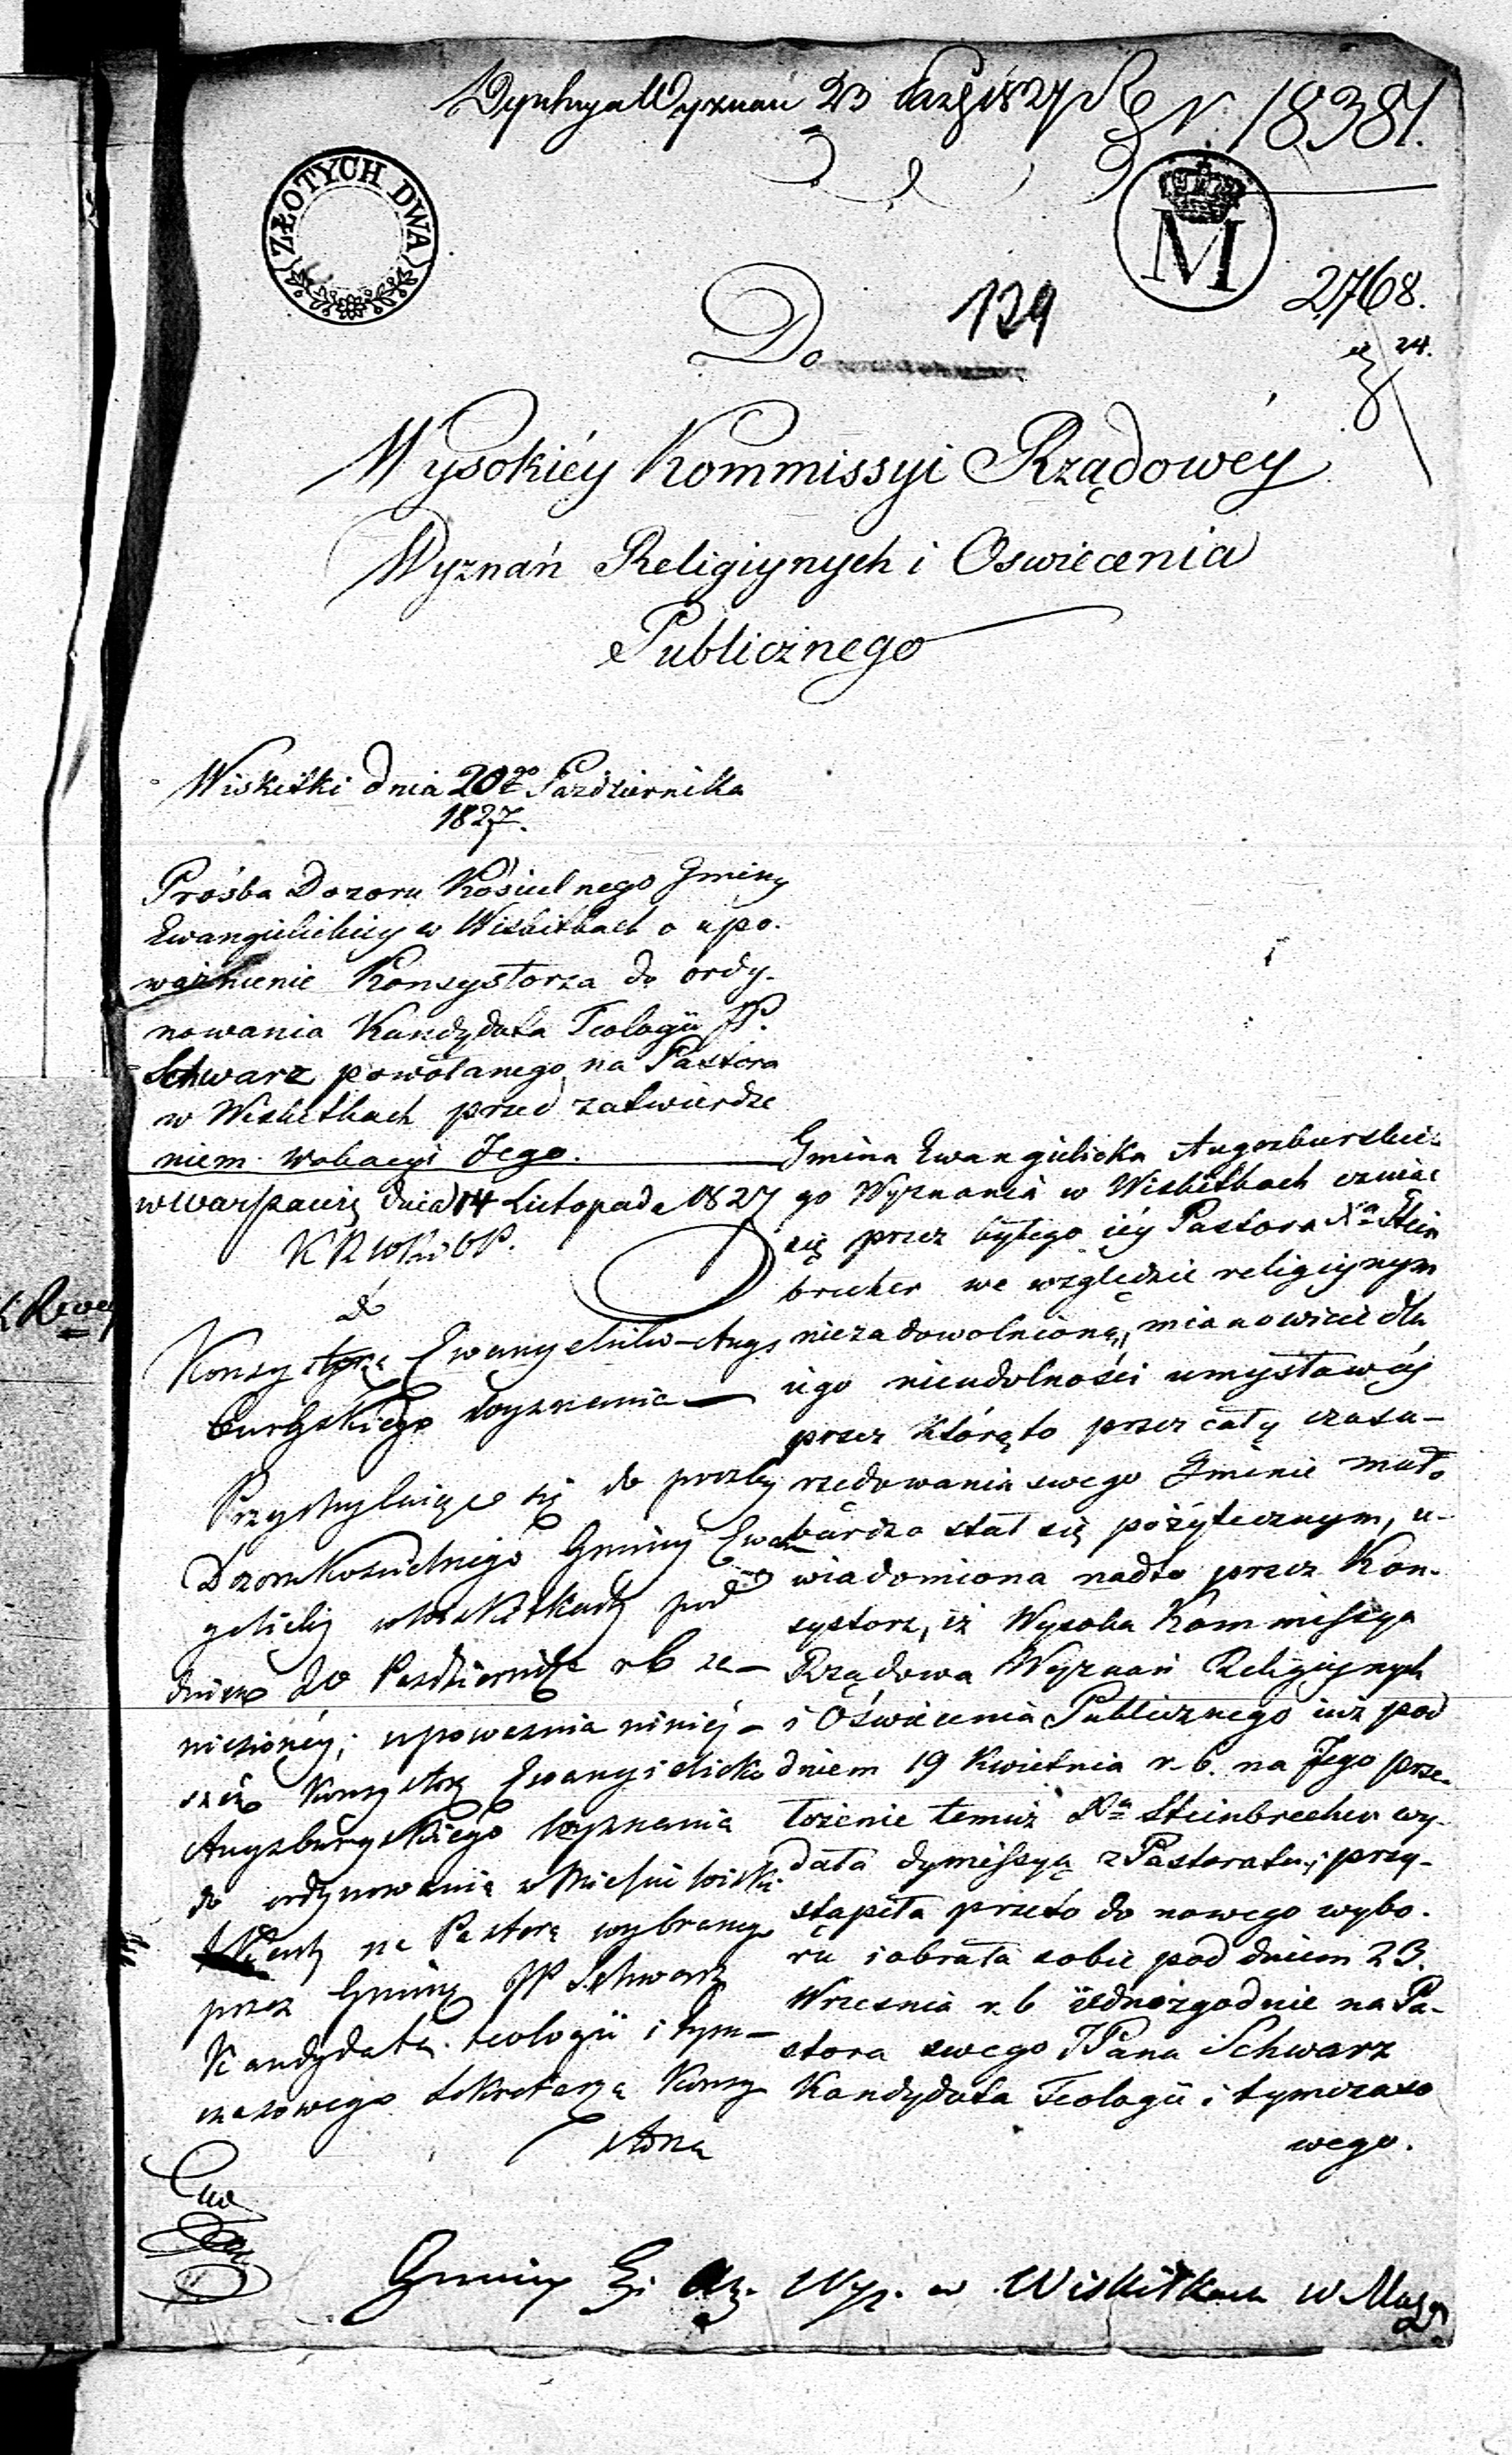 Dyrekcya Wyznań 23 Paźd 1827 N. 18381.
ZŁOTYCH DWA
M
2768.
24.
129
Do
Wysokiéy Kommissyi Rządowéy
Wyznań Religiynych i Oswiecenia
Publicznego
Wiskitki dnia 20go Pazdziernika
1827.
Prośba Dozoru Kościelnego Gminy
Ewangielickiey w Wiskitkach o upo-
ważnienie Konsystorza do ordy-
nowania Kandydata Teologii JP.
Schwarz powołanego na Pastora
w Wiskitkach przed zatwierdze
niem Wokacyi Jego.
w Warszawie dnia 14 Listopada 1827
K R W R i O P.
do
Konsystorza Ewangelicko-Augs
burgskiego wyznania
Przychylaiąc się do prozby
Dozoru Kościelnego Gminy Ewan
gelickiy w Wiskitkach pod
dniem 20 Pazdziernika rb za-
niesionéy, upoważnia niniéy-
szém Konsystorz Ewangielicko
Augsburgskiego wyznania
do ordynowania w Mieście Wiski
tkach na Pastora wybranego
przez Gminę JP Schwarz
Kandydata teologii i tym-
czasowego Sekretarza Konsy
storza
Gmina Ewangielicka Augszburskie-
go Wyznania w Wiskitkach czuiąc
się przez byłego iéy Pastora Xa Stein
brecher we względzie religiynym
niezadowolnioną, mianowicie dla
iego nieudolności umysłowéy
przez którą to przez cały czas u-
rzędowania swego Gminie mało
bardzo stał się pożytecznym, u-
wiadomiona nadto przez Kon-
systorz, iż Wysoka Kommissya
Rządowa Wyznań Religiynych
i Oświecenia Publicznego iuż pod
dniem 19 Kwietnia r. b. na Jego prze-
łożenie temuż Xa Steinbrecher wy-
dała dymissyą z Pastoratu, przy-
stąpiła przeto do nowego wybo-
ru i obrała sobie pod dniem 23.
Wrzesnia r. b iednozgodnie na Pa-
stora swego JPana Schwarz
Kandydata Teologii i tymczaso
wego.
Gminy E. A. Wyz. w Wiskitkach W. Maz.